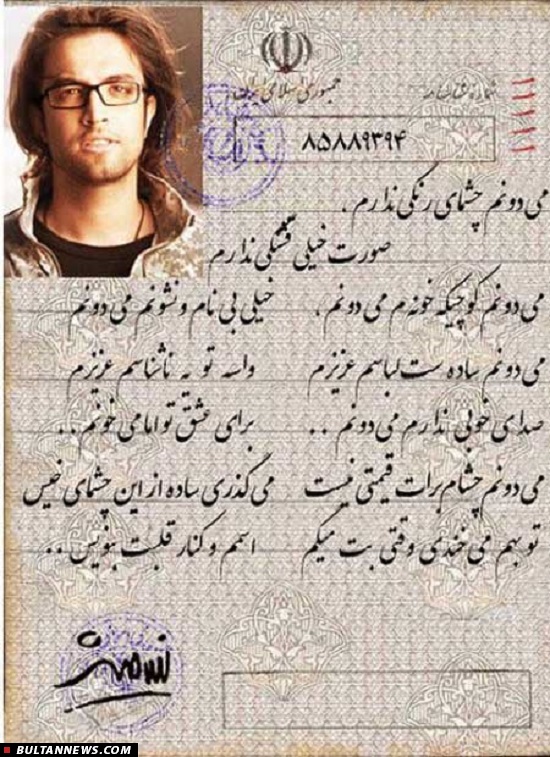 جمهوری اسلامی ایران
۱۱۱۱۱
۸۵۸۸۹۳۹۴
می دونم چشمای رنگی ندارم .
صورت خیلی قشنگی ندارم
می دونم کوچیکه خونه م می دونم . خیلی بی نام و نشونم می دونم
می دونم ساده ست لباسم عزیزم واسه تو یه ناشناسم عزیزم
صدای خوبی ندارم می دونم .. برای عشق تو اما می خونم ..
می دونم چشام برات قیمتی نیست می گذری ساده از این چشمای خیس
تو بهم می خندی وقتی بت میگم اسم و کنار قلبت بنویس ..
BULTANNEWS.COM